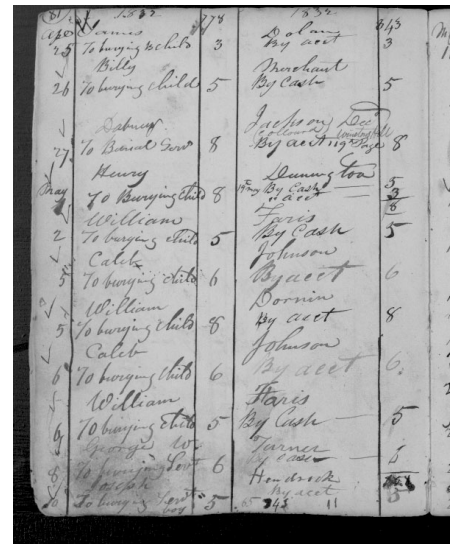 1832 778 1832 843
Apl James Dolan
25 To burying B child 3 By acct 3
Billy Merchant
26 To burying child 5 By Cash 5
Dabney Jackson Decd
27 To Burial Servt 8 By acct 119 Page 8
Henry Dunington
May To Burying Child 8 By Cash 5
acct 3
8
William Faris
2 To burying child 5 By Cash 5
Caleb Johnson
5 To burying child 6 By acct 6
William Dornin
5 To burying child 8 By acct 8
Caleb Johnson
6 To burying child 6 By acct 6
William Faris
6 To burying child 5 By Cash 5
George W. Turner
8 To burying Servt 6 By Cash
Joseph Hendrick
To burying Servt boy 5 By acct 5
65 343 11